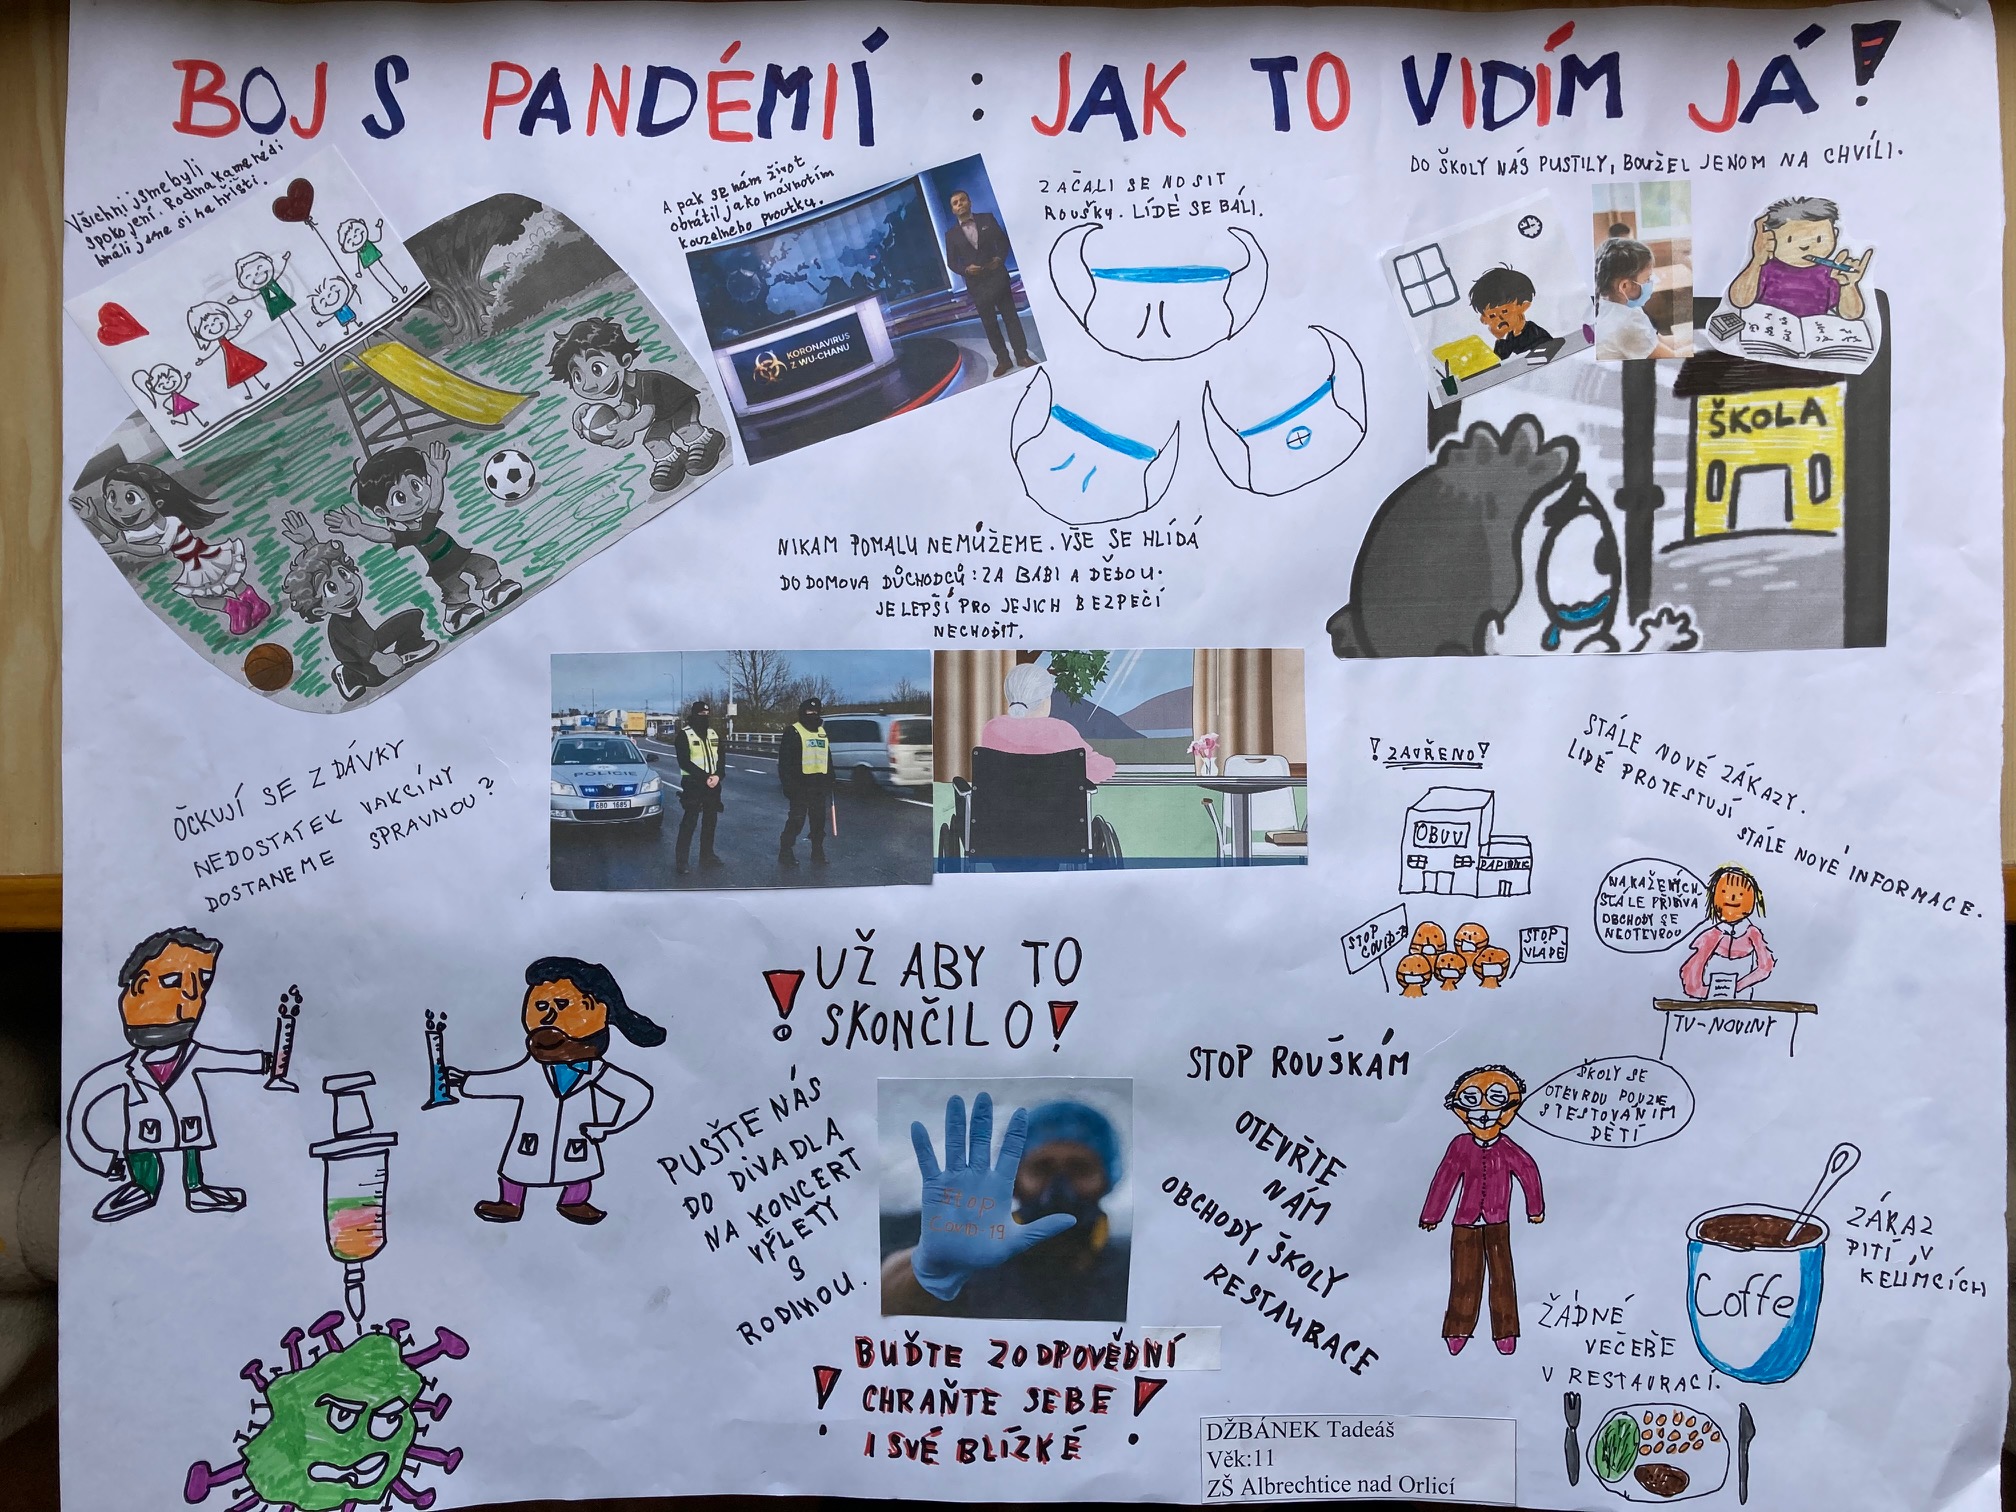 BOJ S PANDÉMIÍ : JAK TO VIDÍM JÁ!
Všichni jsme byli
spokojení. Rodina kamarádi
hráli jsme si na hřišti.
A pak se nám život
obrátil jako mávnotím
kouzelneho proutku.
KORONAVIRUS
Z WU-CHANU
ZAČALI SE NOSIT
ROUŠKY. LIDÉ SE BÁLI.
DO ŠKOLY NÁS PUSTILY, BOUŽEL JENOM NA CHVÍLI.
ŠKOLA
NIKAM POMALU NEMŮŽEME. VŠE SE HLÍDÁ
DO DOMOVA DŮCHODCŮ: ZA BABI A DĚDOU.
JE LEPŠÍ PRO JEJICH BEZPEČÍ
NECHODIT.
POLICIE
6B0 1685
OČKUJÍ SE Z DÁVKY
NEDOSTATEK VAKCÍNY
DOSTANEME SPRAVNOU?
! ZAVŘENO!
OBUV
PAPÍRNIC
STÁLE NOVÉ ZÁKAZY.
LIDÉ PROTESTUJÍ
STÁLE NOVÉ INFORMACE.
STOP
COVID-19
STOP
VLÁDĚ
NAKAŽENÝCH
STÁLE PŘIBÍVÁ
OBCHODY SE
NEOTEVŘOU
TV-NOVINY
! UŽ ABY TO
SKONČILO!
PUSŤTE NÁS
DO DIVADLA
NA KONCERT
VÝLETY
S
RODINOU.
Stop
Covid-19
STOP ROUŠKÁM
OTEVŘTE
NÁM
OBCHODY, ŠKOLY
RESTAURACE
ŠKOLY SE
OTEVŘOU POUZE
S TESTOVÁNÍM
DĚTÍ
Coffe
ZÁKAZ
PITÍ V
KELIMCÍCH
ŽÁDNÉ
VEČEŘE
V RESTAURACÍ.
BUĎTE ZODPOVĚDNÍ
! CHRAŇTE SEBE !
I SVÉ BLÍZKÉ
DŽBÁNEK Tadeáš
Věk:11
ZŠ Albrechtice nad Orlicí